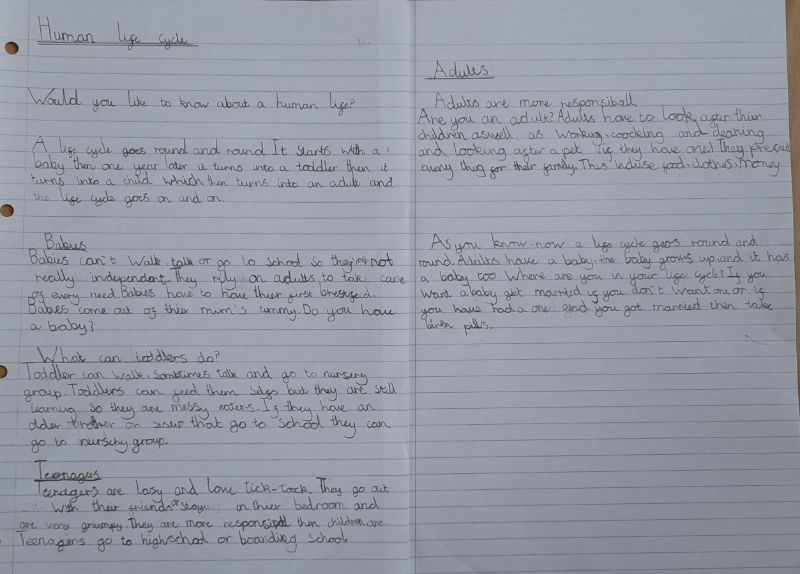 Human life cycle
Would you like to know about a human life?
A life cycle goes round and round It starts with a
baby then one year later it turns into a toddler then it
turns into a child which then turns into an adult and
the life cycle goes on and on.
Babies
Babies can't walk talk or go to school so they're not
really independent. They rely on adults to take care
of every need. Babies have to have thier first
Babies come out of thier mum's tummy. Do you have
a baby?
What can toddlers do?
Toddler can walk, somtimes talk and go to nursery
group. Toddlers can feed them selfs but they are still
learning so they are messy eaters. If they have an
older brother or sister that go to school they can
go to nurschy group.
Teenagers
Teenagers are lasy and love tick-tock. They go out
with their friends or stay in thier bedroom and
are very grumpy. They are more then children are.
Teenagers go to highschool or boarding school.
Adults
Adults are more responsiball.
Are you an adult? Adults have to look after thier
children aswell as working, coocking and cleaning
and looking after a pet (if they have one!) They
every thing for their family. This food, clothes, money
As you know now a life cycle goes round and
round. Adults have a baby, the baby grows up, and it has
a baby too. Where are you in your life cycle? If you
want a baby get married if you don't want one or if
you have had a one and you got married then take
birth pills.